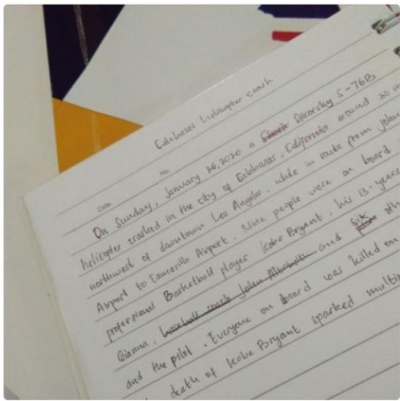 Calabasas helicopter crash
DATE NO
On Sunday, January 26, 2020 a Sikorsky S-76B
helicopter crashed in the city of Calabasas, California around 30 m
northwest of downtown Los Angeles, while in route from John
Airport to Camarillo Airport. Nine people were on board
professional Basketball player Kobe Bryant, his 13-year
Gianna, baseball coach John Altobelli and six oth
and the pilot. Everyone on board was killed on
death of Kobe Bryant sparked multip